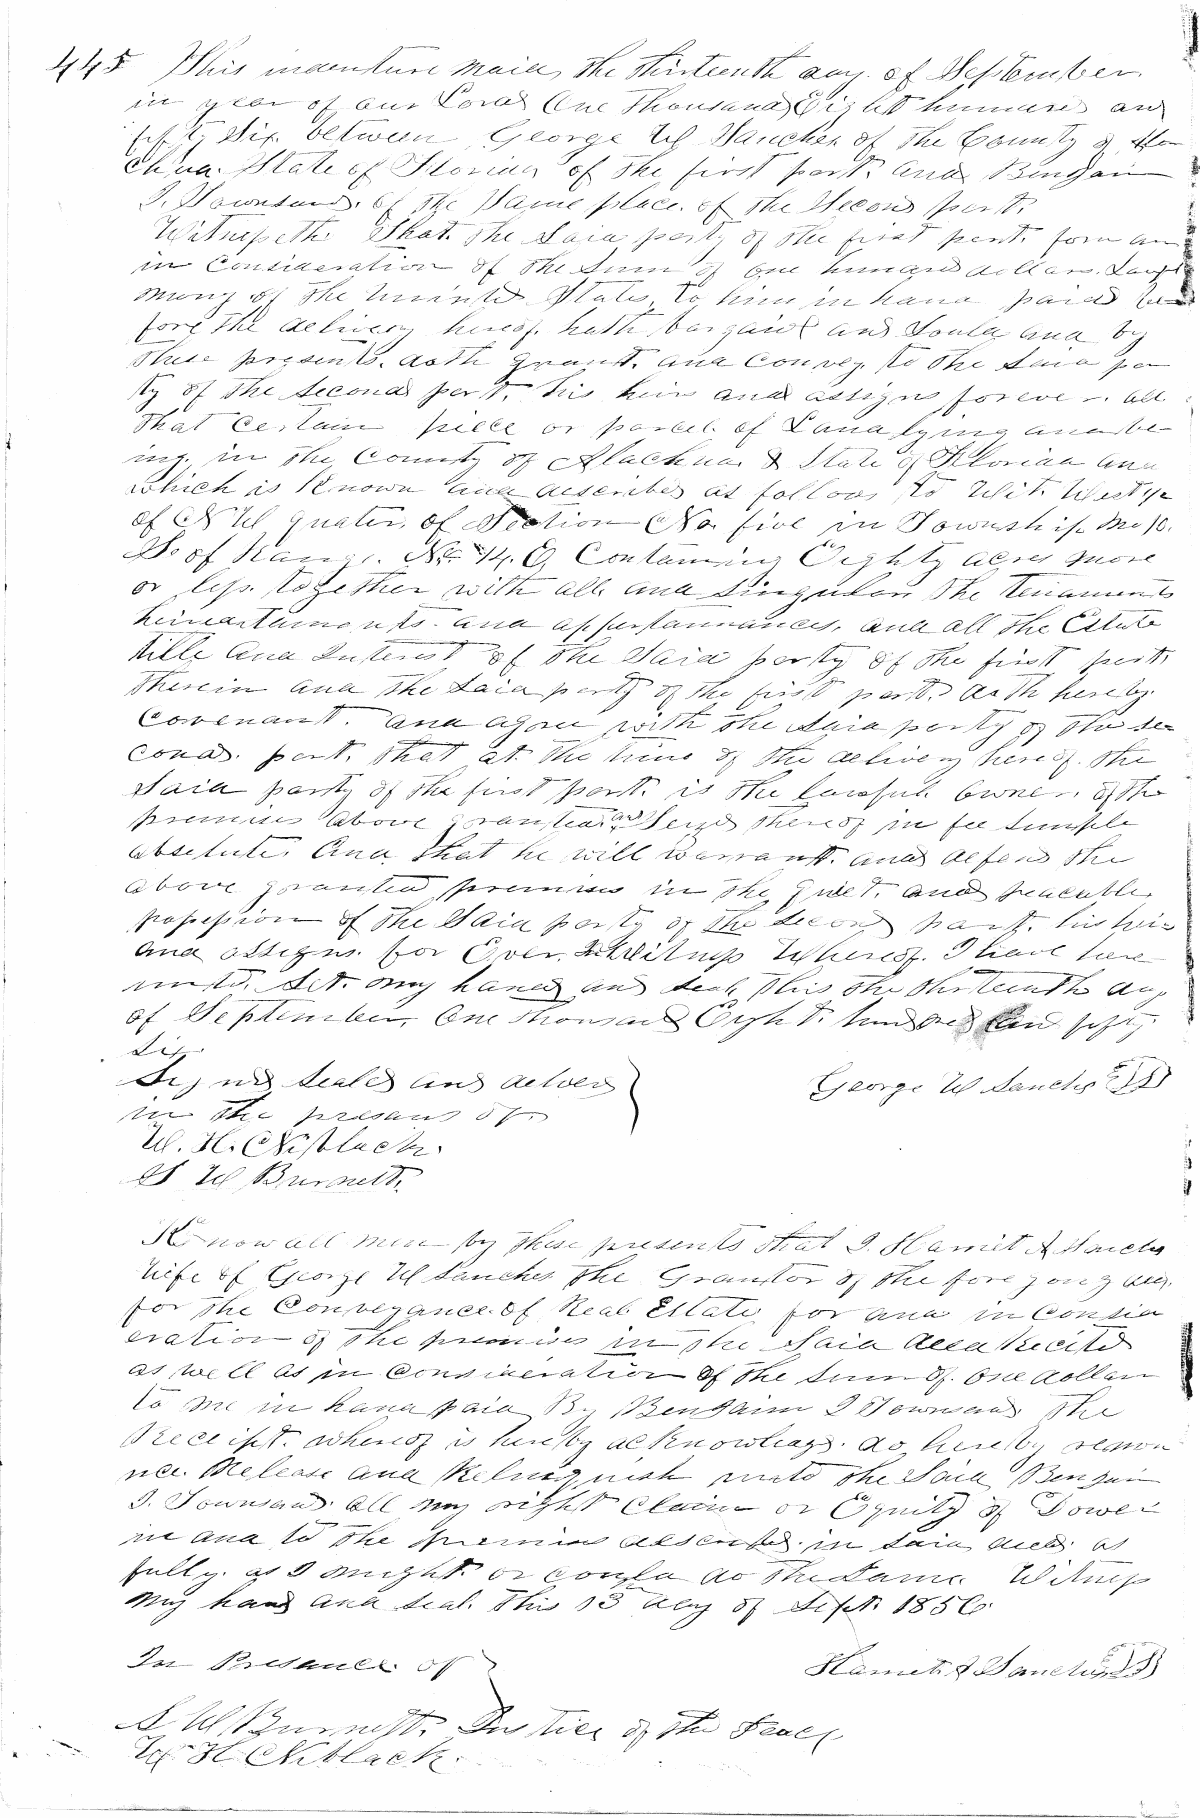 445 This indenture maid the thirteenth day of September
in year of our Lord One thousand Eight hundred and
fifty Six between George W Sanches of the County of Ala
chua State of Florida of the first part and Benjain
I. Townsend of the Same place of the Second part.
Witnesseth that the Said party of the first part for an
in Consideration of the Sum of one hundred dollars Lawful
mony of the Uninted States, to him in hand paid be
fore the delivery hereof hath bargaind and Sould and by
these presents doth grant and Convey to the Said par
ty of the Second part, his heirs and assigns forever all
that Certain piece or parcel of Land lying and be
ing in the County of Alachua & State of Florida and
which is Known and described as follows to Wit. West ½
of N W quater of Section No. five in Township No 10.
So of Range No. 14. E, Containing Eighty acres more
or less together with all and Singular the tenaments
and appertannances, and all the Estate
title and Interest of the Said party of the first part
therein and the Said party of the first part doth hereby
Covenant and agree with the Said party of the se
cond part that at the time of the delivery hereof the
Said party of the first part is the lawfull Owner of the
premises above granted and Seizd thereof in fee Simple
absolute And that he will Warrant and defend the
above granted premises in the quiet and peacable
possession of the Said party of the Second part his heirs
and assigns for Ever. In Witness Whereof I have here
unto Set my hand and seal this the thirteenth day
of September, One thousand Eight hundred and fifty
Six.
Signd Sealed and delverd
in the presans of
George W Sanches
W. H. Niblack.
S W Burnett.
Know all men by these presents that I. Harriet A Sanches
Wife of George W Sanches the Grantor of the foregoing deed
for the Conveyance of Real Estate for and in Consid
eration of the premises in the Said deed Recited
as well as in Consideration of the Sum of One dollar
to me in hand paid By Benjaim I Townsend the
Receipt whereof is hereby acknowledgd do hereby renoun
nce Release and Relinquish unto the Said Benjain
I. Townsend all my right Claim or Equity of Dower
in and to the premises described in Said deed as
fully as I might or could do the Same Witness
my hand and Seal this 13 day of Sept. 1856.
In Presance of
Harriet A Sanches
S. W. Burnett. Justice of the Peace
W. H. Niblack.